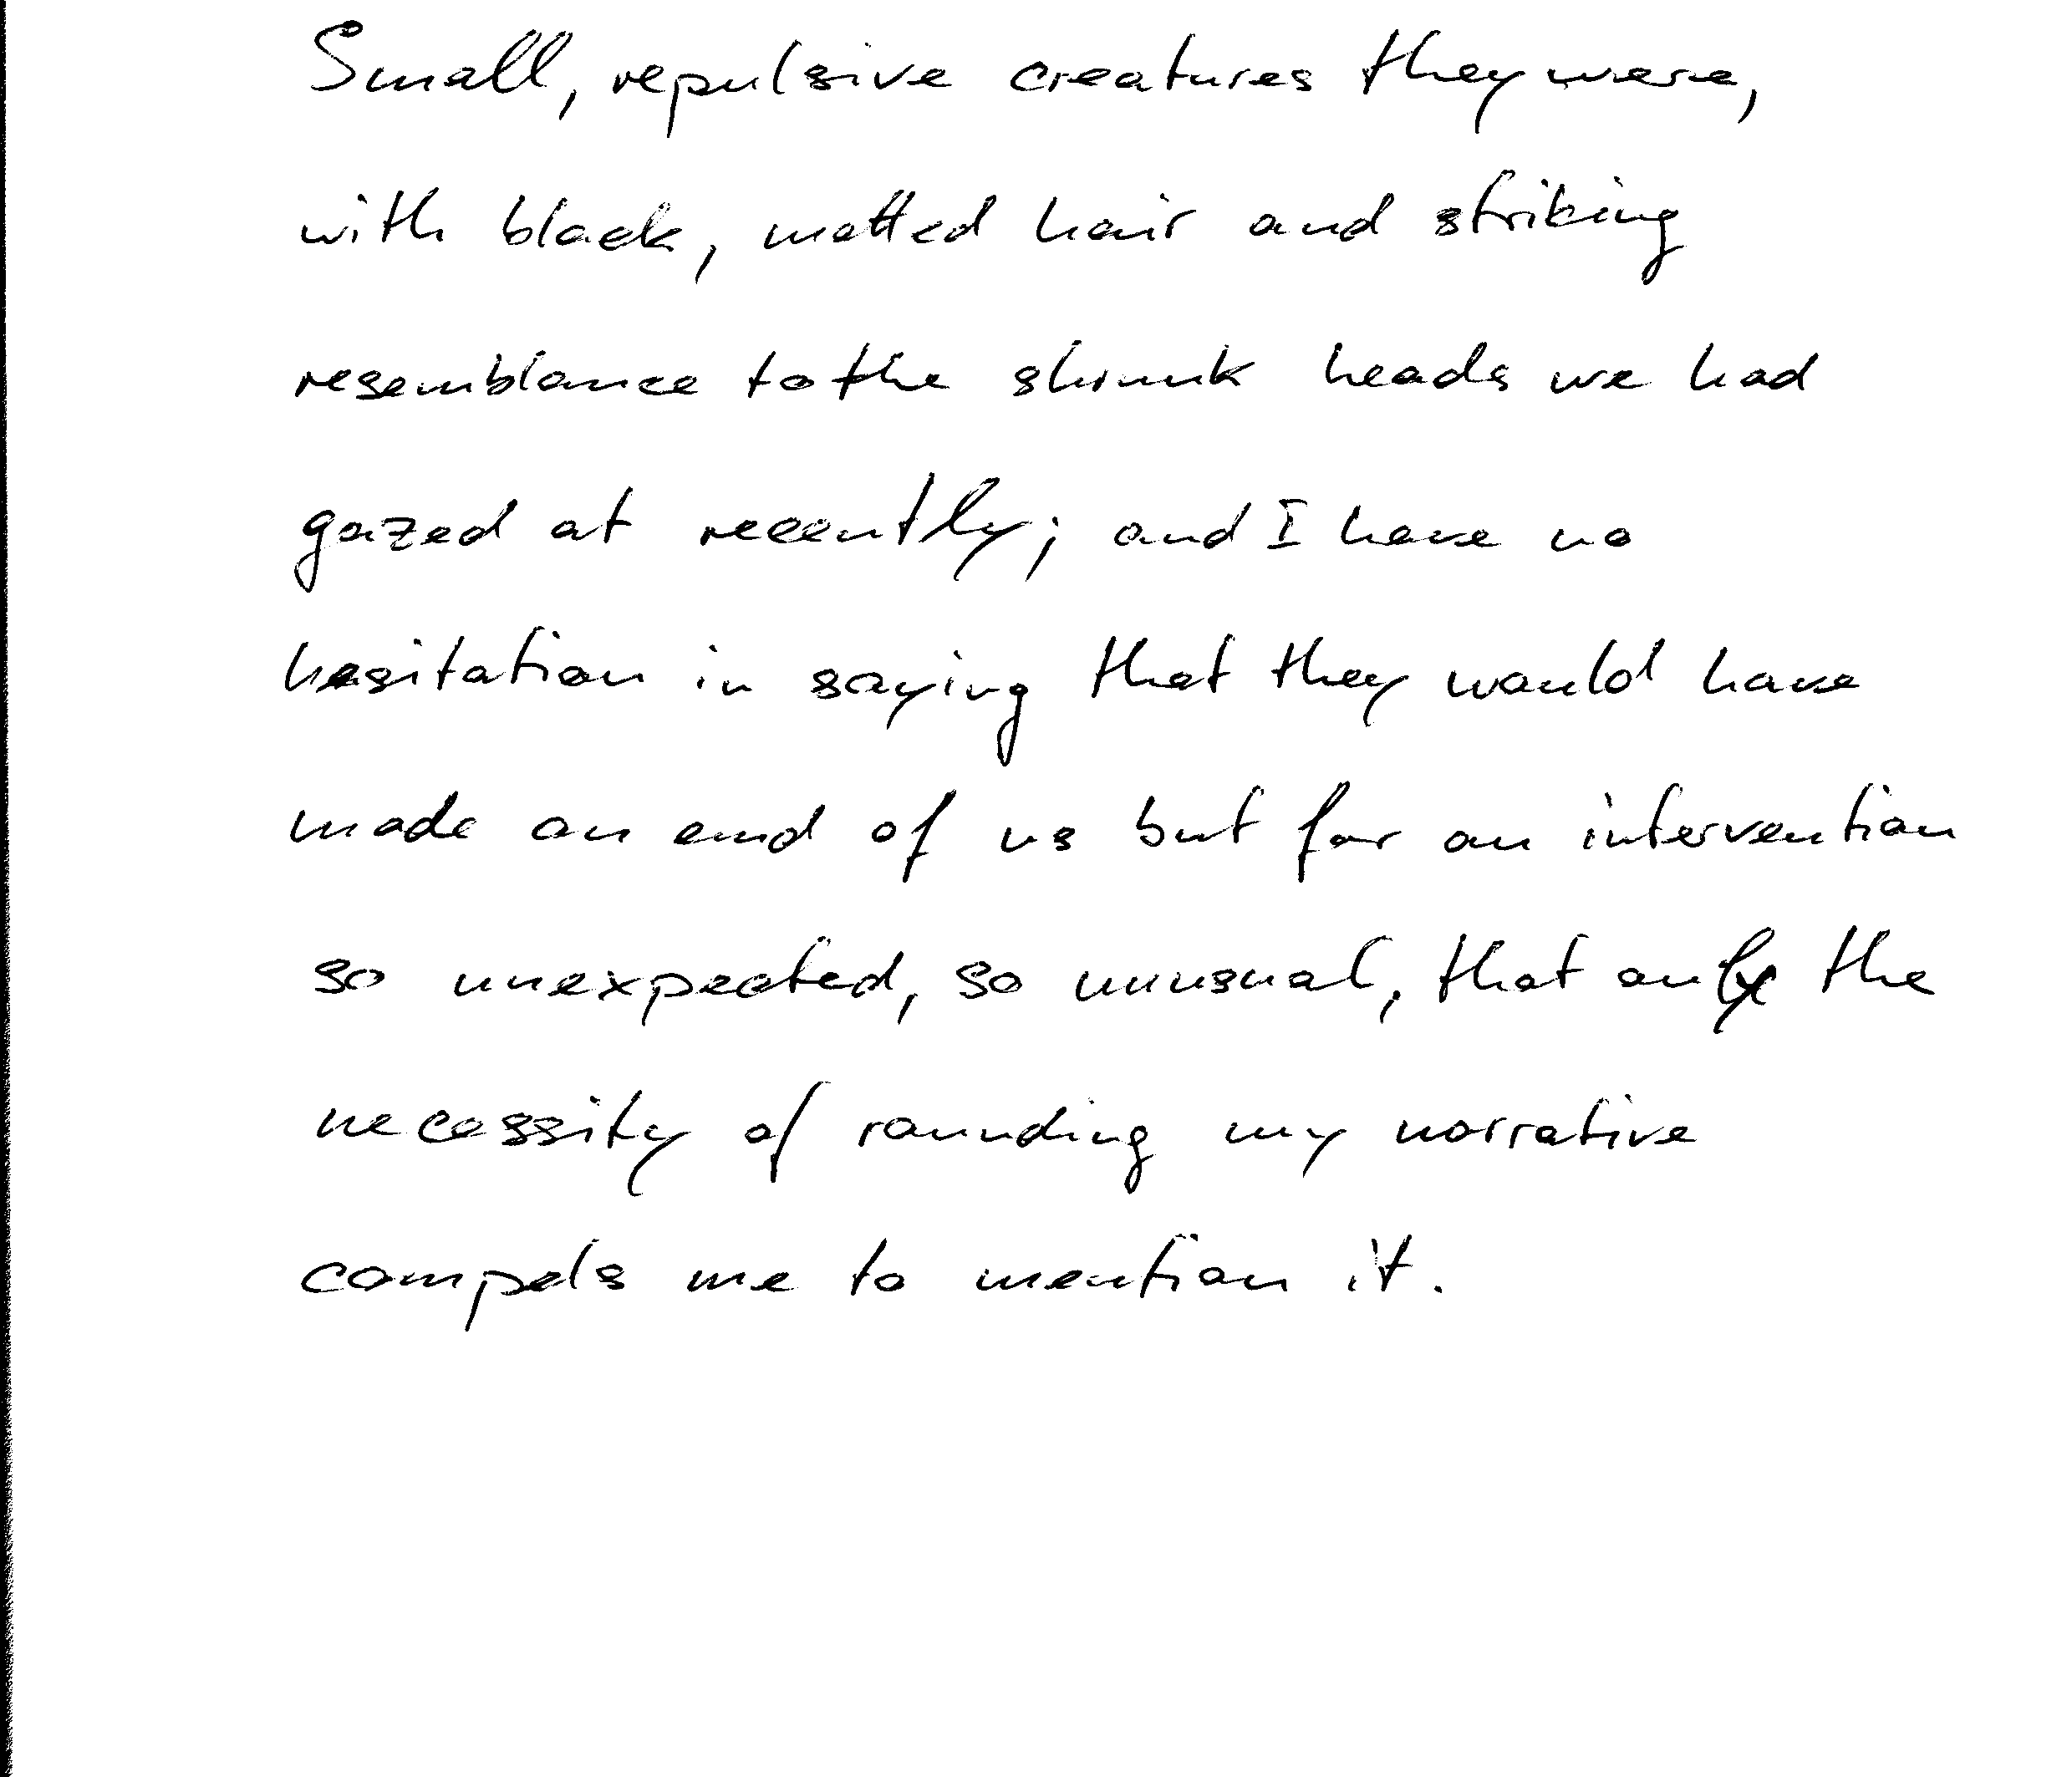 Small, repulsive creatures they were,
with black, matted hair and striking
resemblance to the shrunk heads we had
gazed at recently; and I have no
hesitation in saying that they would have
made an end of us but for an intervention
so unexpected, so unusual, that only the
necessity of rounding my narrative
compels me to mention it.